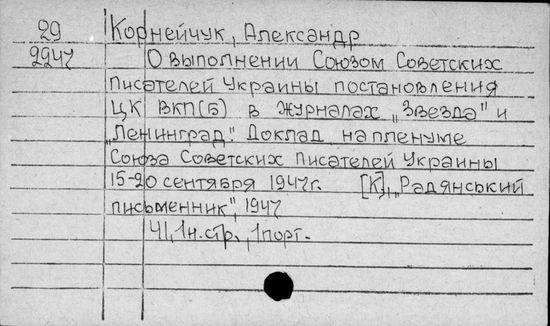 29 Корнейчук, Александр
2247 О выполнении Союзом Советских
Писателей Украины постановления
ЦК ВКП(б) в журналах „Звезда" и
„Ленинград". Доклад на пленуме
Союза Советских Писателей Украины
15-20 сентября 1947г. [К], „Радянський
письменник", 1947
41, 1н.стр., 1порт.